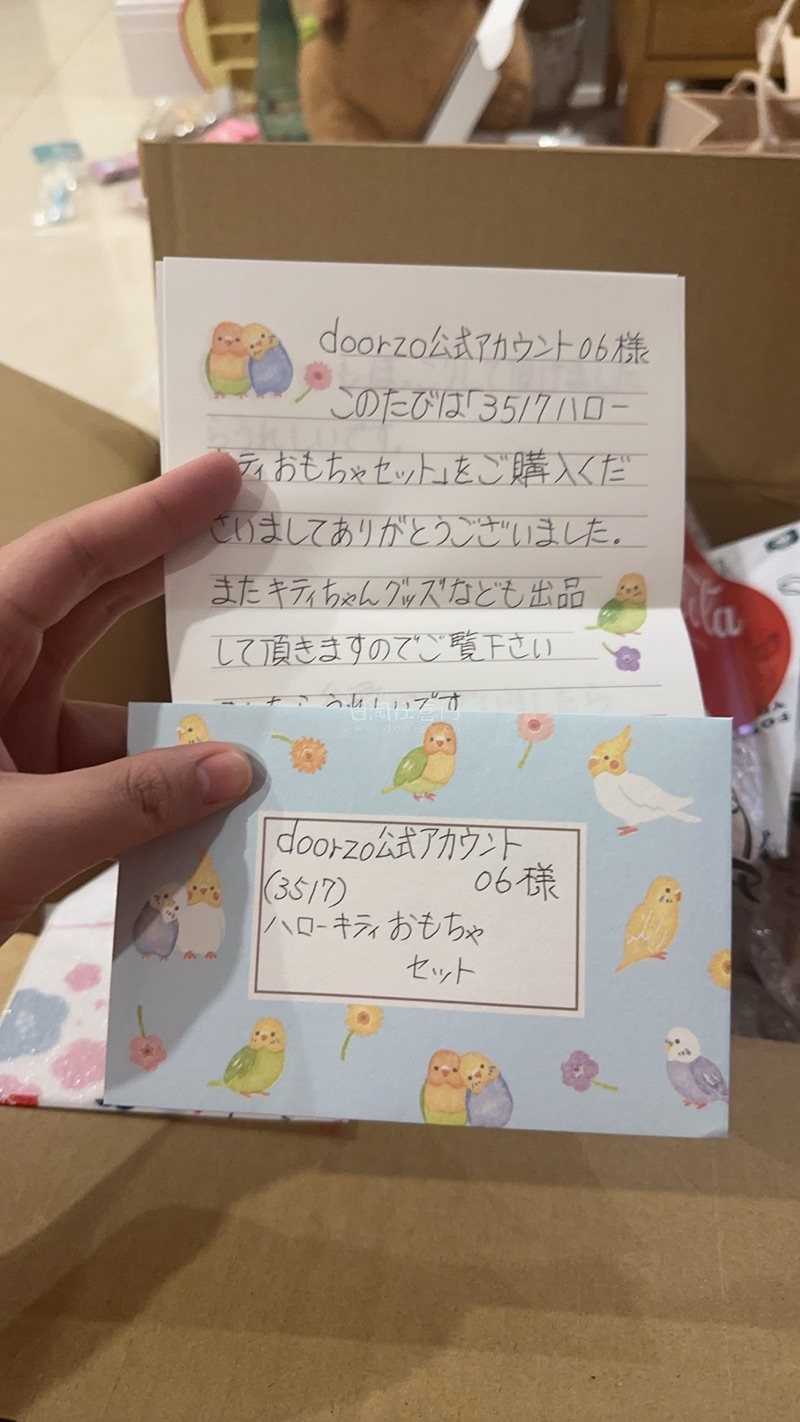 doorzo公式アカウント06様
このたびは「3517ハロー
ティおもちゃセット」をご購入くだ
さいましてありがとうございました。
またキティちゃんグッズなども出品
して頂きますのでご覧下さい
うれしいです
www.doorzo.com
doorzo公式アカウント
(3517) 06様
ハローキティおもちゃ
セット